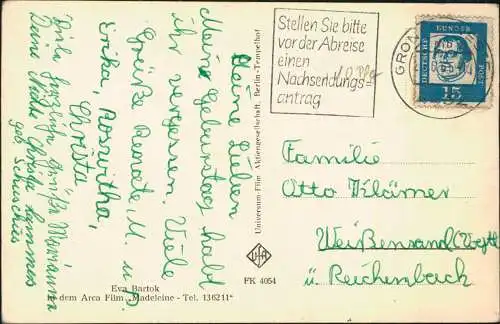 Meine Lieben
Meine Geburtstag habt
ihr vergessen. Viele
Grüße Renate, M. u. P.
Erika, Roswitha,
Christa
Viele herzliche Grüße Marianna
Deine Nichte Christa
geb. Schuschies
Universum-Film Aktiengesellschaft. Berlin-Tempelhof
Ufa
FK 4054
Eva Bartok
in dem Arca Film „Madeleine - Tel. 136211"
Stellen Sie bitte
vor der Abreise
einen
Nachsendungs-
antrag
GRON
DEUTSCHE BUNDESPOST
15
Familie
Otto Klärner
Weißensand (Vogtl)
ü. Reichenbach